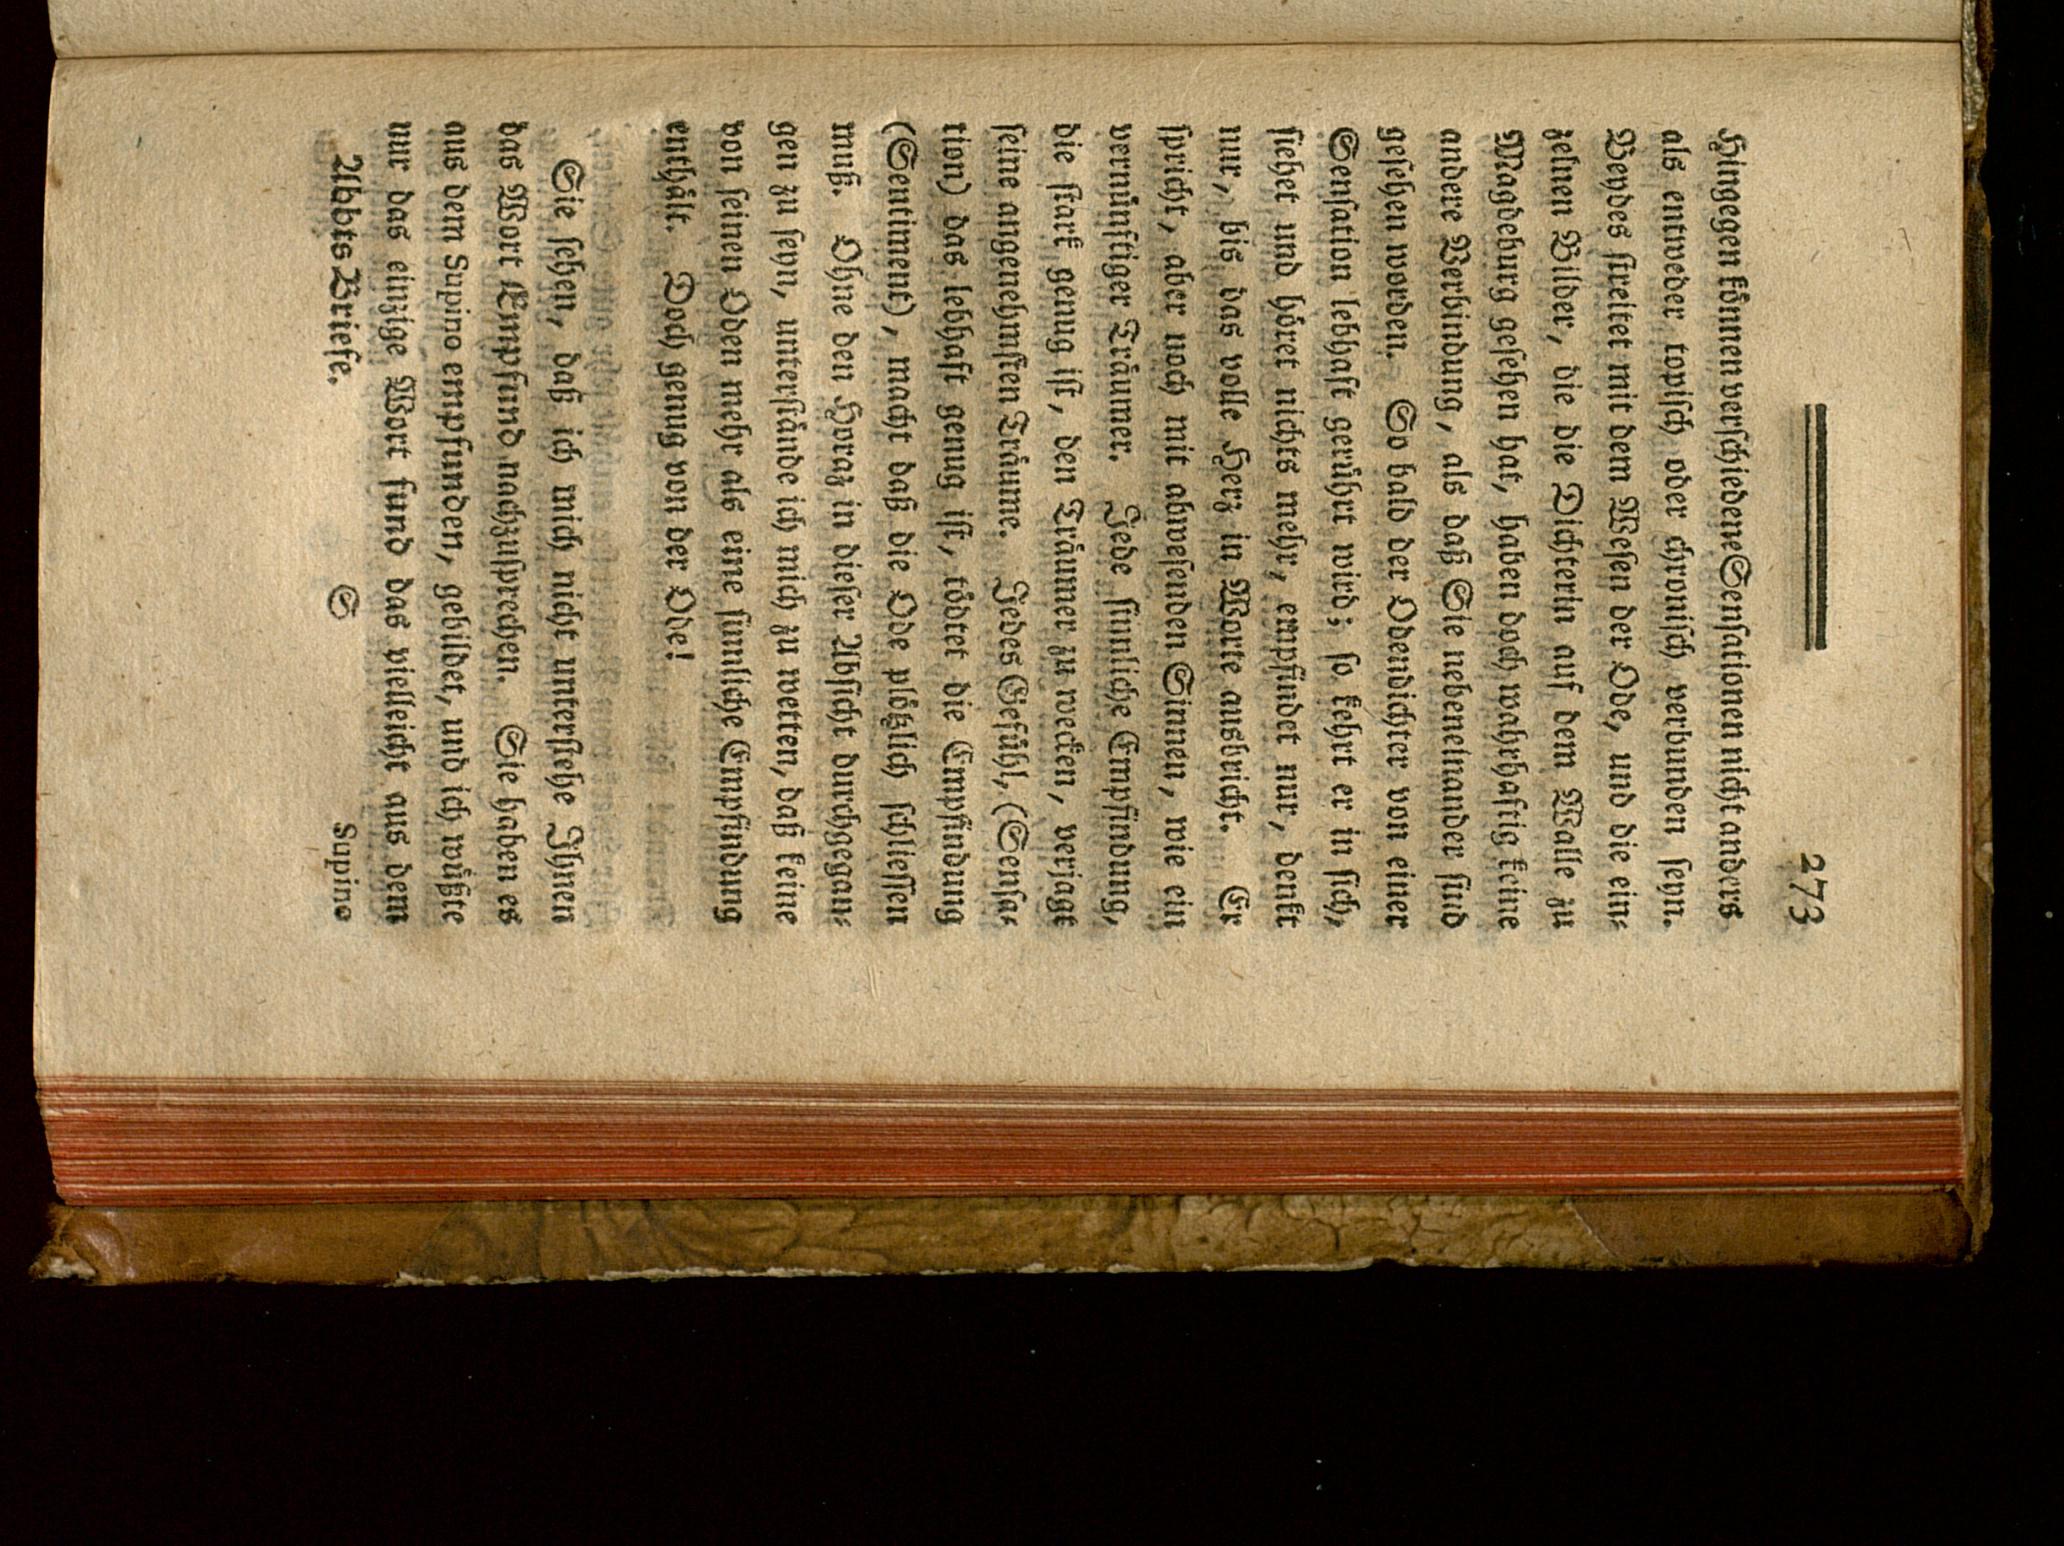 273
Hingegen können verschiedene Sensationen nicht anders
als entweder topisch oder chronisch verbunden seyn.
Beydes streitet mit dem Wesen der Ode, und die ein-
zelnen Bilder, die die Dichterin auf dem Walle zu
Magdeburg gesehen hat, haben doch wahrhaftig keine
andere Verbindung, als daß Sie nebeneinander sind
gesehen worden. So bald der Odendichter von einer
Sensation lebhaft gerührt wird; so kehrt er in sich,
siehet und höret nichts mehr, empfindet nur, denkt
nur, bis das volle Herz in Worte ausbricht. Er
spricht, aber noch mit abwesenden Sinnen, wie ein
vernünftiger Träumer. Jede sinnliche Empfindung,
die stark genug ist, den Träumer zu wecken, verjagt
seine angenehmsten Träume. Jedes Gefühl, (Sensa-
tion) das lebhaft genug ist, tödtet die Empfindung
(Sentiment), macht daß die Ode plötzlich schliessen
muß. Ohne den Horaz in dieser Absicht durchgegan-
gen zu seyn, unterstände ich mich zu wetten, daß keine
von seinen Oden mehr als eine sinnliche Empfindung
enthält. Doch genug von der Ode!
Sie sehen, daß ich mich nicht unterstehe Ihnen
das Wort Empfind nachzusprechen. Sie haben es
aus dem Supino empfunden, gebildet, und ich wüßte
nur das einzige Wort fund das vielleicht aus dem
Abbts Briefe. S Supino